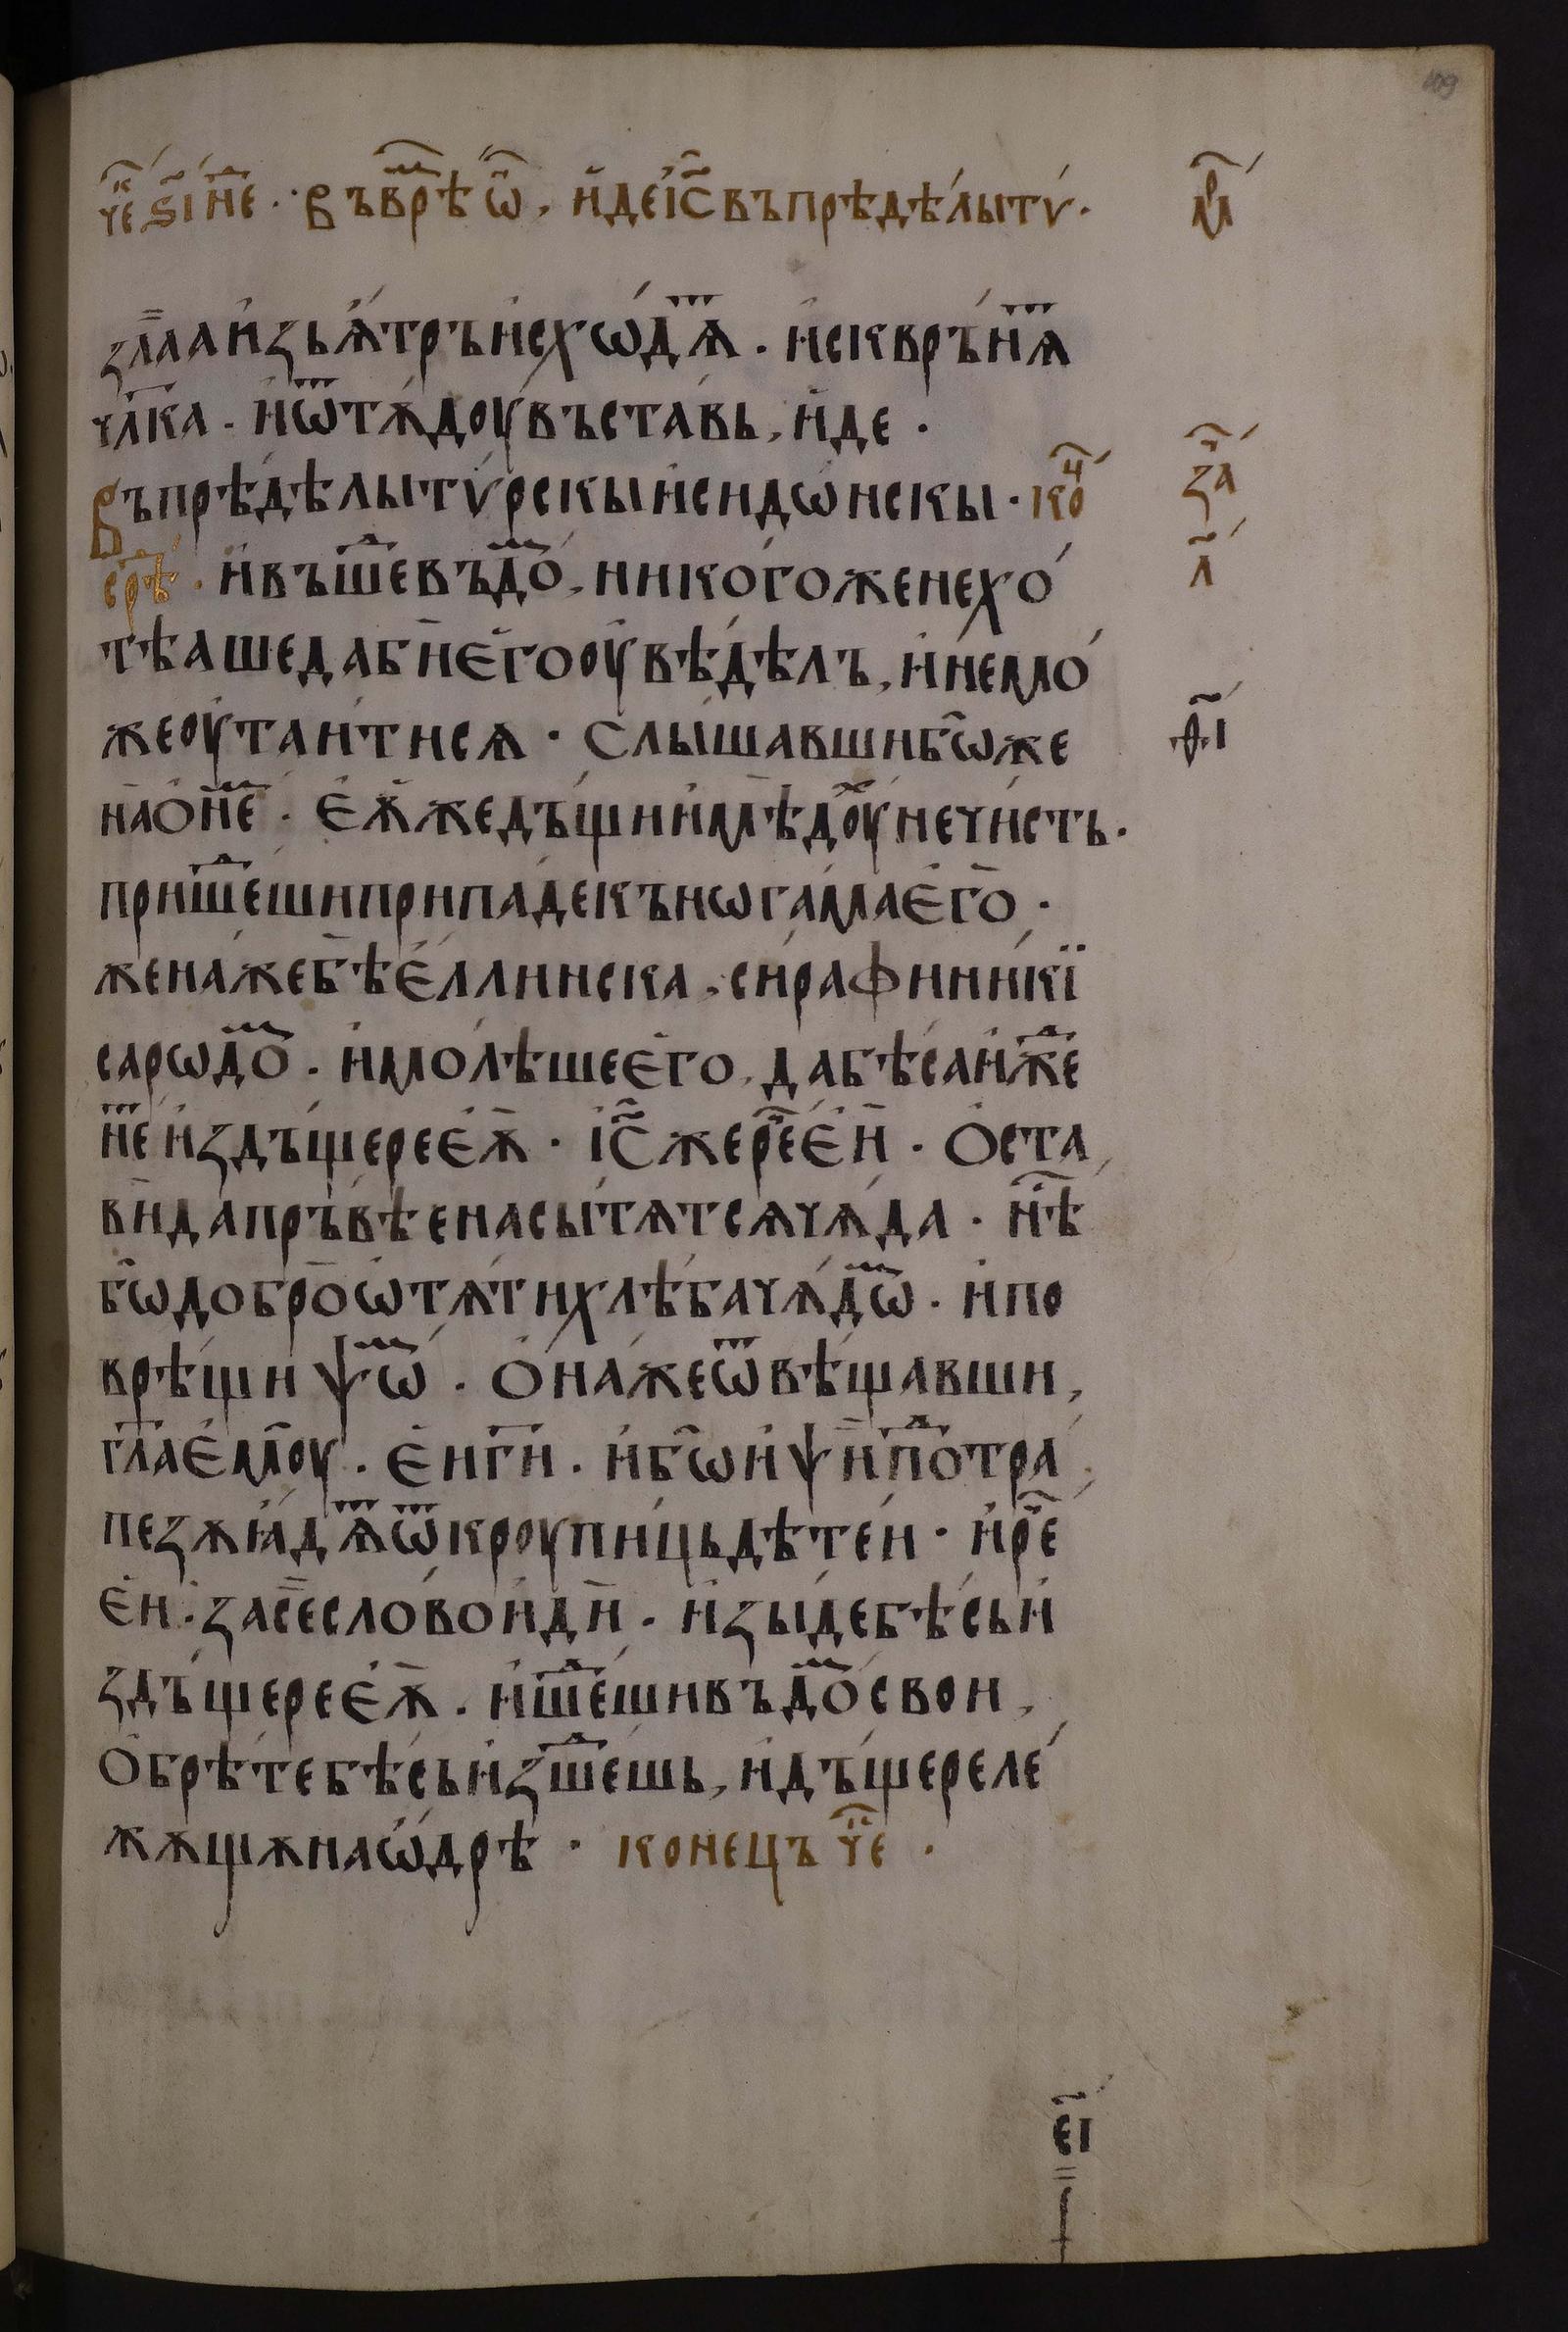 че҃ ѕ҃і не҃ · въ вр҃ѣ ѡ҃, и́де і҃с въ прѣдѣ́лы тѵ · мр҃
зла́а изъѫ́тръ исхѡ́дѧт҃ · и сквръ́нѧт҃
чл҃ка · и ѿтѫ́доу въста́вь, и́де ·
Въ прѣдѣ́лы тѵ́рскы и сидѡ́нскы · кон҃ за҃ч
срѣ҃ · и въше́д въ до́м, нико́гоже не хо́ л҃
тѣаше да би его оувѣ́дѣлъ, и не мо́
же оута́итисѧ · Слы́шавши бѡ же ѳ҃і
на о не́м · Еѫ́же дъ́щи имѣ доу́х нечи́стъ ·
прише́дши припа́де къ нѡга́ма его ·
жена́ же бѣ е́ллинска, си́рафини́кї
са рѡдо́м · и мо́лѣше его, да бѣ́са ижде
не́т из дъ́щере еѫ · І҃с же рече ей · Оста́
ви да пръ́вѣе насы́тѧтсѧ чѧ́да · нѣ́с
бѡ добро ѡтѧ́ти хлѣ́ба чѧ́дѡм · и по
врѣ́щи ѱѡ́м · О́на́ же ѿвѣ́щавши,
гл҃а ему · Ей ги҃ · и бѡ и ѱи под тра
пезѫ ꙗдѧ́т ѿ кроупи́ць дѣте́и · и рече
ей · за се сло́во иди · изы́де бѣ́сь и
з дъ́щере еѫ · и ше́дши въ до́м свои,
О́брѣ́те бѣ́сь изше́дшь, и дъ́щере ле́
жѫщѫ на ѡ́дрѣ · конецъ че҃ ·
е҃і
109